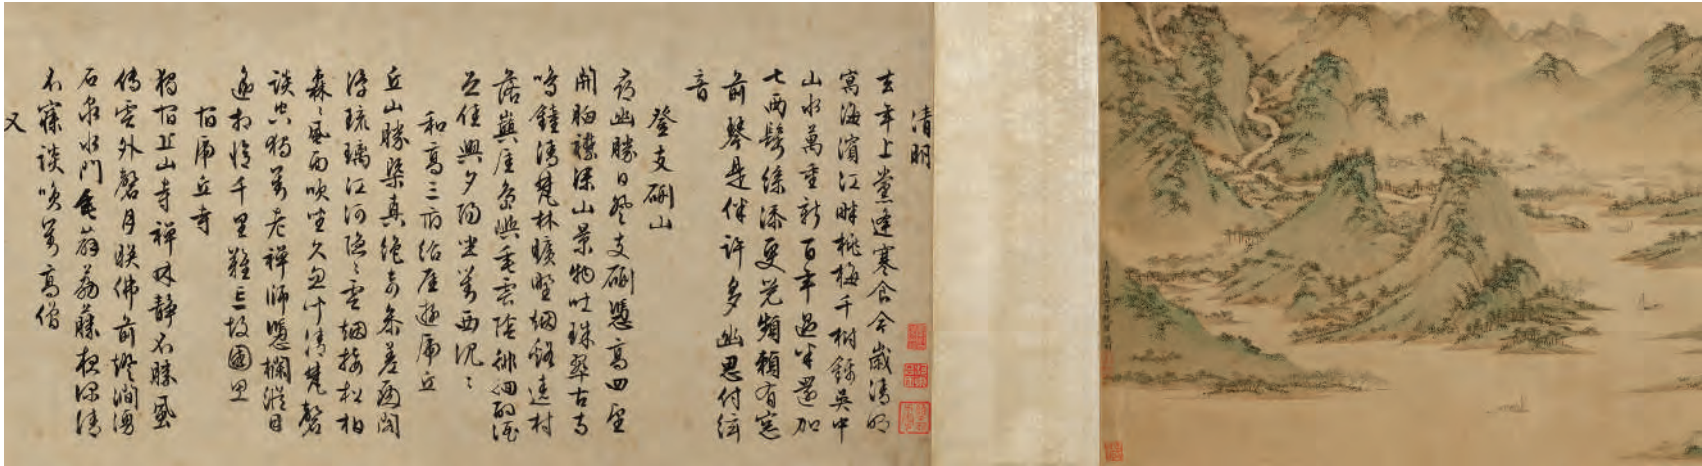 清明
去年上黨逢寒食今歲清明
寓海濱江畔桃梅千樹錦吳中
山水萬重新百年過半還加
七兩鬢絲添更兄頻賴有窓
前琴是伴許多幽思付絃
音
登支硎山
尋幽勝日登支硎憑高四望
開胸襟深山景物吐珠翠古寺
鳴鐘清梵林曠野烟銷遠村
落輿厓島嶼垂雲陰徘徊酌酒
足佳興夕陽坐對西沉沉
和高三府給厓遊虎丘
丘山勝槩真絶奇參差兩閣
浮琉璃江河隱隱雲烟接松柏
森森風雨吹坐久忽聞清梵磬
談空獨對老禪師憑欄縱目
遙相憶千里難忘故國思
宿虎丘寺
獨宿丘山寺禪林靜不勝風
傳雲外磬月映佛前燈澗湧
石泉水門垂薜荔藤夜深清
不寐談笑對高僧
又